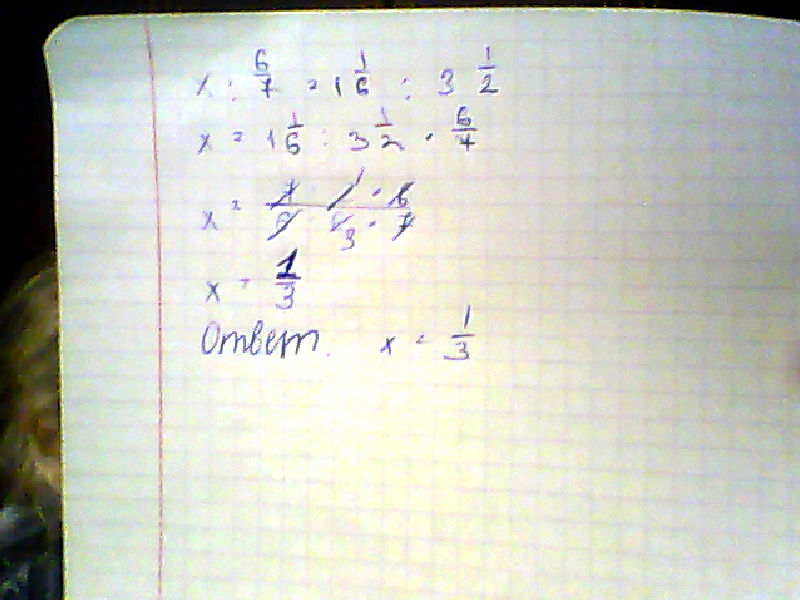 x : 6/7 = 1 1/6 : 3 1/2
x = 1 1/6 : 3 1/2 · 6/7
x =
x = 1/3
Ответ. x = 1/3